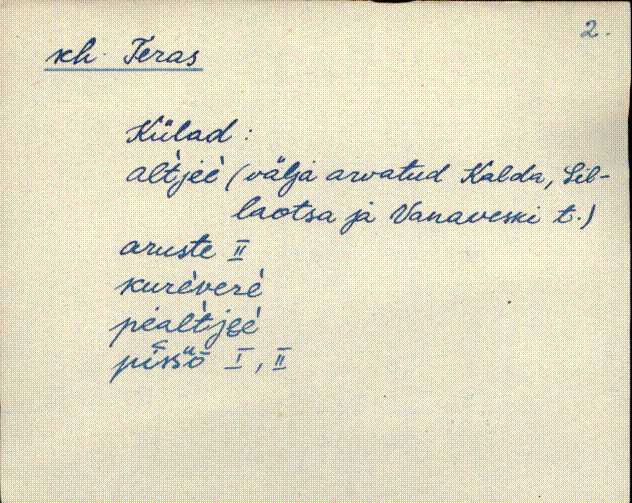 2.
kh. Teras
Külad:
alt̀jeè (välja arvatud Kalda, Sil-
laotsa ja Vanaveski t.)
aruste II
kurèverè
pealt̀jeè
pissu̬ō I, II